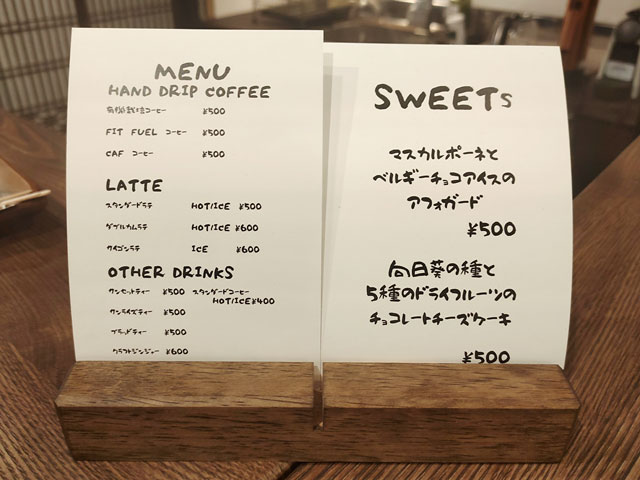 MENU
HAND DRIP COFFEE
有機栽培コーヒー ¥500
FIT FUEL コーヒー ¥500
CAF コーヒー ¥500
LATTE
スタンダードラテ HOT/ICE ¥500
ダブルカムラテ HOT/ICE ¥600
ワイゴンラテ ICE ¥600
OTHER DRINKS
ワンセットティー ¥500 スタンダードコーヒー
HOT/ICE ¥400
サンライズティー ¥500
ブラッドティー ¥500
クラフトジンジャー ¥600
SWEETs
マスカルポーネと
ベルギーチョコアイスの
アフォガード
¥500
向日葵の種と
5種のドライフルーツの
チョコレートチーズケーキ
¥500